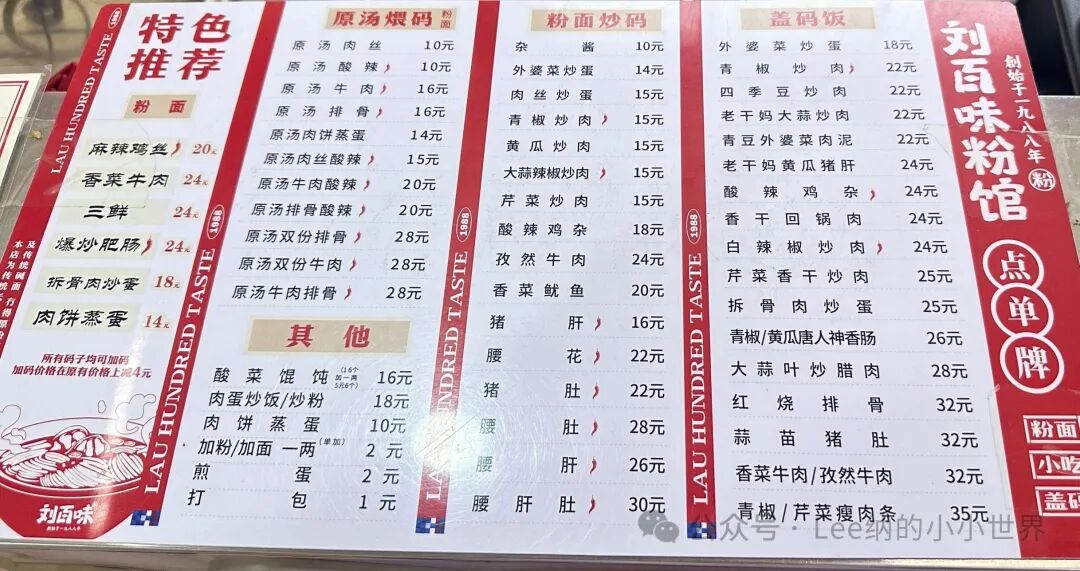 特色
推荐
粉 面
麻辣鸡丝 20元
香菜牛肉 24元
三鲜 24元
爆炒肥肠 24元
拆骨肉炒蛋 18元
肉饼蒸蛋 14元
所有码子均可加码
加码价格在原有价格上减4元
刘百味
创始于一九八八年
LAU HUNDRED TASTE 1988
原汤煨码 粉面
原汤肉丝 10元
原汤酸辣 10元
原汤牛肉 16元
原汤排骨 16元
原汤肉饼蒸蛋 14元
原汤肉丝酸辣 15元
原汤牛肉酸辣 20元
原汤排骨酸辣 20元
原汤双份排骨 28元
原汤双份牛肉 28元
原汤牛肉排骨 28元
其他
酸菜馄饨(16个加一两5元6个) 16元
肉蛋炒饭/炒粉 18元
肉饼蒸蛋 10元
加粉/加面 一两(单加) 2元
煎蛋 2元
打包 1元
LAU HUNDRED TASTE 1988
粉面炒码
杂酱 10元
外婆菜炒蛋 14元
肉丝炒蛋 15元
青椒炒肉 15元
黄瓜炒肉 15元
大蒜辣椒炒肉 15元
芹菜炒肉 15元
酸辣鸡杂 18元
孜然牛肉 24元
香菜鱿鱼 20元
猪肝 16元
腰花 22元
猪肚 22元
腰肚 28元
腰肝 26元
腰肝肚 30元
LAU HUNDRED TASTE 1988
盖码饭
外婆菜炒蛋 18元
青椒炒肉 22元
四季豆炒肉 22元
老干妈大蒜炒肉 22元
青豆外婆菜肉泥 22元
老干妈黄瓜猪肝 24元
酸辣鸡杂 24元
香干回锅肉 24元
白辣椒炒肉 24元
芹菜香干炒肉 25元
拆骨肉炒蛋 25元
青椒/黄瓜唐人神香肠 26元
大蒜叶炒腊肉 28元
红烧排骨 32元
蒜苗猪肚 32元
香菜牛肉/孜然牛肉 32元
青椒/芹菜瘦肉条 35元
刘百味粉馆
創始于一九八八年 粉
点单牌
粉面
小吃
盖码
公众号 · Lee纳的小小世界